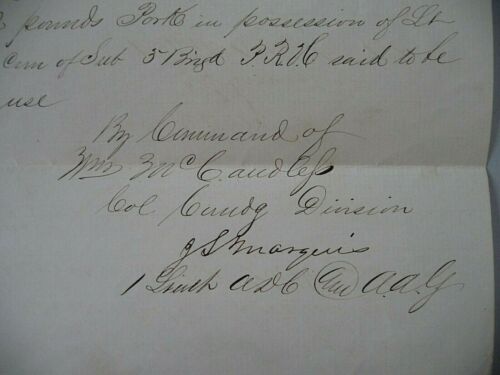 pounds Pork in possession of Lt
Com of Sub 3 Brigd P.R.V.C said to be
use
By Command of
Wm McCandless
Col Comdg Division
J S Marquis
1 Lieut ADC and A.A.G